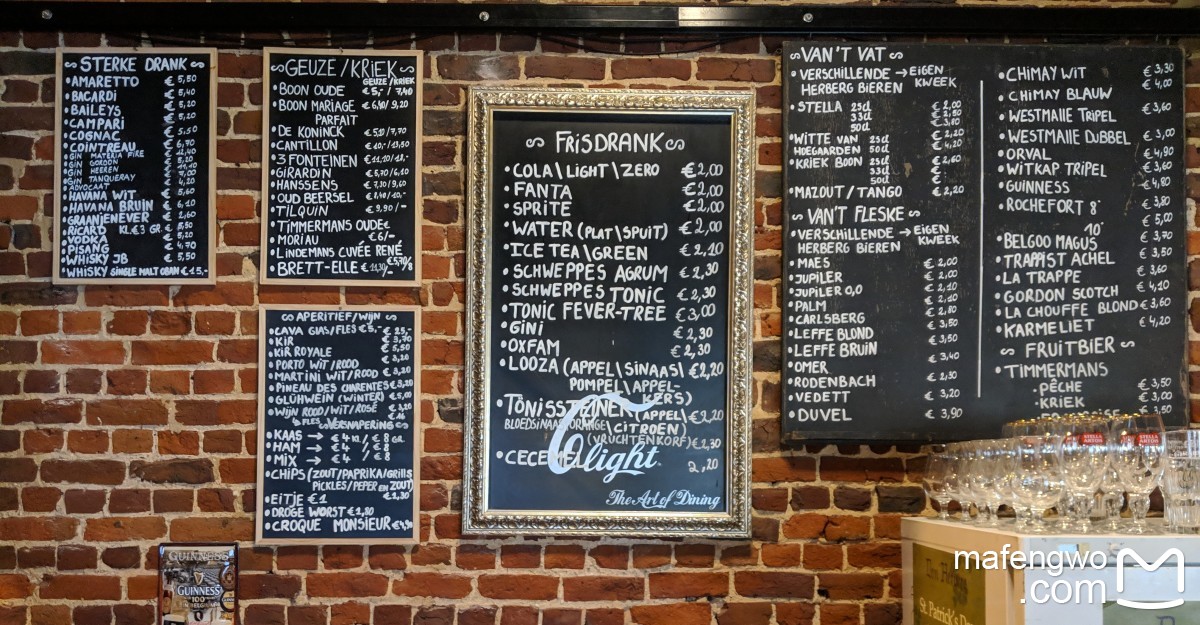 STERKE DRANK
AMARETTO € 5,50
BACARDI € 5,40
BAILEYS € 5,20
CAMPARI € 5,20
COGNAC € 5,50
COINTREAU € 6,70
GIN MATERIA FIRE
GIN GORDON
GIN HEEREN
GIN TANQUERAY
ADVOCAAT
HAVANA WIT € 5,60
HAVANA BRUIN € 6,10
GRAANJENEVER € 2,60
RICARD KL €3 GR. € 5,50
VODKA € 5,20
PISANG € 4,70
WHISKY JB € 5,50
WHISKY SINGLE MALT OBAN € 15,-
GEUZE/KRIEK
GEUZE/KRIEK
BOON OUDE € 5,-/7,40
BOON MARIAGE € 6,10/9,20
PARFAIT
DE KONINCK € 5,10/7,70
CANTILLON € 10,-/13,50
3 FONTEINEN € 11,10/18,-
GIRARDIN € 5,70/6,10
HANSSENS € 7,30/9,60
OUD BEERSEL € 7,40/10,-
TILQUIN € 9,90/-
TIMMERMANS OUDE
MORIAU € 6/-
LINDEMANS CUVÉE RENÉ
BRETT-ELLE € 11,30/-
APERITIEF/WIJN
CAVA GLAS/FLES € 5,- € 25,-
KIR € 3,70
KIR ROYALE € 5,50
PORTO WIT/ROOD € 3,20
MARTINI WIT/ROOD € 3,20
PINEAU DES CHARENTES € 3,20
GLÜHWEIN (WINTER) € 5,00
WIJN ROOD/WIT/ROSÉ € 3,20
FLES € 16
VERSNAPERING
KAAS → € 4 KL/€ 8 GR.
HAM → € 4 / € 8
MIX → € 4 / € 8
CHIPS (ZOUT/PAPRIKA/GRILLS
PICKLES/PEPER EN ZOUT)
EITJE € 1 € 1,30
DROGE WORST € 1,80
CROQUE MONSIEUR
FRISDRANK
COLA\LIGHT\ZERO €2,00
FANTA €2,00
SPRITE €2,00
WATER (PLAT\SPUIT) €2,00
ICE TEA\GREEN € 2,10
SCHWEPPES AGRUM € 2,30
SCHWEPPES TONIC € 2,30
TONIC FEVER-TREE € 3,00
GINI € 2,30
OXFAM € 2,30
LOOZA (APPEL\SINAAS\ € 2,20
POMPEL\APPEL-
KERS)
TÖNISSTEINER (APPEL\ € 2,20
BLOEDSINAAS\ORANGE \CITROEN)
(VRUCHTENKORF) € 2,30
CECEMEL 2,20
Cα light
The Art of Dining
VAN'T VAT
VERSCHILLENDE → EIGEN
HERBERG BIEREN KWEEK
STELLA 25cl € 2,00
33cl € 2,50
50cl € 3,80
WITTE VAN 25cl € 2,20
HOEGAARDEN 50cl € 4,20
KRIEK BOON 25cl € 2,60
33cl €
50cl €
MAZOUT/TANGO € 2,20
VAN'T FLESKE
VERSCHILLENDE → EIGEN
HERBERG BIEREN KWEEK
MAES € 2,00
JUPILER € 2,00
JUPILER 0,0 € 2,10
PALM € 2,10
CARLSBERG € 2,80
LEFFE BLOND € 3,50
LEFFE BRUIN
OMER € 3,40
RODENBACH € 2,30
VEDETT € 3,20
DUVEL € 3,90
CHIMAY WIT € 3,30
CHIMAY BLAUW € 4,00
WESTMALLE TRIPEL € 3,60
WESTMALLE DUBBEL € 3,00
ORVAL € 4,90
WITKAP TRIPEL € 3,60
GUINNESS € 4,80
ROCHEFORT 8° € 3,80
10° € 5,00
BELGOO MAGUS € 3,70
TRAPPIST ACHEL € 3,50
LA TRAPPE € 3,60
GORDON SCOTCH € 4,10
LA CHOUFFE BLOND € 3,60
KARMELIET € 4,20
FRUITBIER
TIMMERMANS
- PÊCHE € 3,50
- KRIEK € 3,50
€ 3,50
GUINNESS
GUINNESS
STELLA ARTOIS
STELLA ARTOIS
St. Patrick's Da
mafengwo
.com